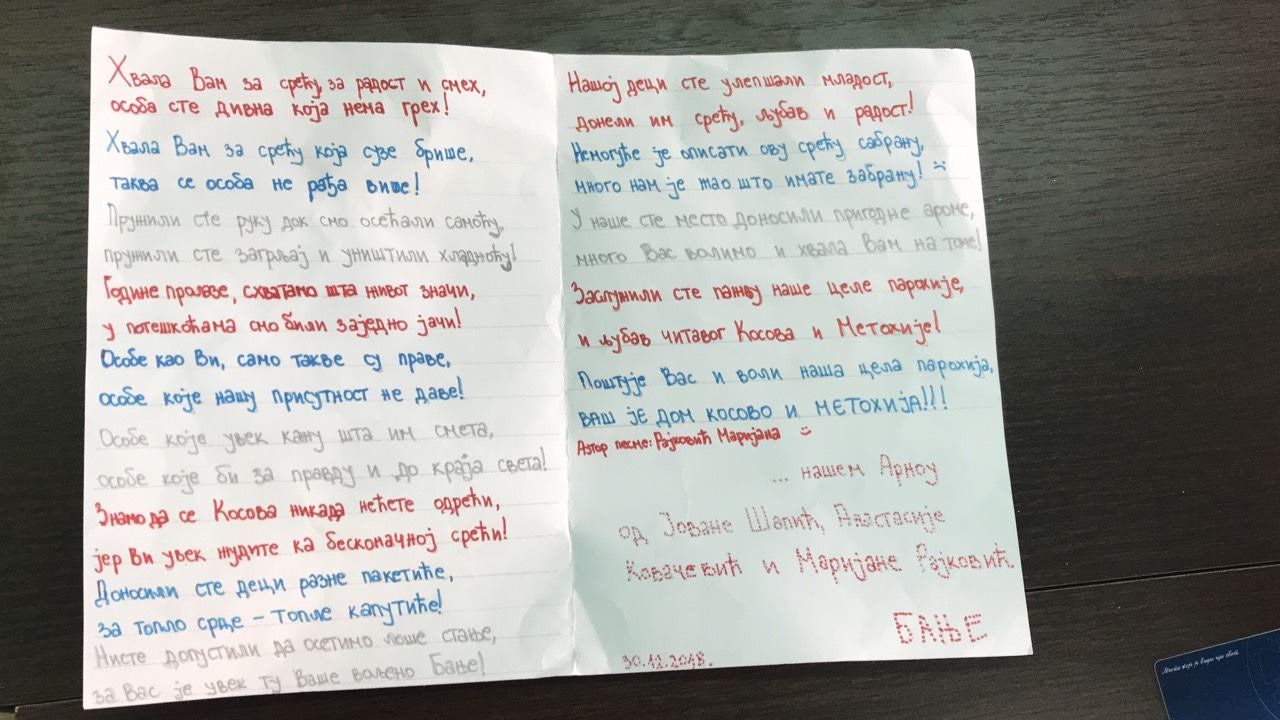 Хвала Вам за срећу, за радост и смех,
особа сте дивна која нема грех!
Хвала Вам за срећу која сузе брише,
таква се особа не рађа више!
Пружили сте руку док смо осећали самоћу,
пружили сте загрљај и уништили хладноћу!
Године пролазе, схватамо шта живот значи,
у потешкоћама смо били заједно јачи!
Особе као Ви, само такве су праве,
особе које нашу присутност не даве!
Особе које увек кажу шта им смета,
особе које би за правду и до краја света!
Знамо да се Косова никада нећете одрећи,
јер Ви увек жудите ка бесконачној срећи!
Доносили сте деци разне пакетиће,
за топло срце – топле капутиће!
Нисте допустили да осетимо лоше стање,
за Вас је увек ту Ваше вољено Бање!
Нашој деци сте улепшали младост,
донели им срећу, љубав и радост!
Немогуће је описати ову срећу сабрану,
много нам је жао што имате забрану!
У наше сте место доносили пригодне ароме,
много Вас волимо и хвала Вам на томе!
Заслужили сте пажњу наше целе парохије,
и љубав читавог Косова и Метохије!
Поштује Вас и воли наша цела парохија,
ВАШ ЈЕ ДОМ КОСОВО И МЕТОХИЈА!!!
Аутор песме: Рајковић Маријана
... нашем Арноу
од Јоване Шапић, Анастасије
Ковачевић и Маријане Рајковић
БАЊЕ
30.12.2018.